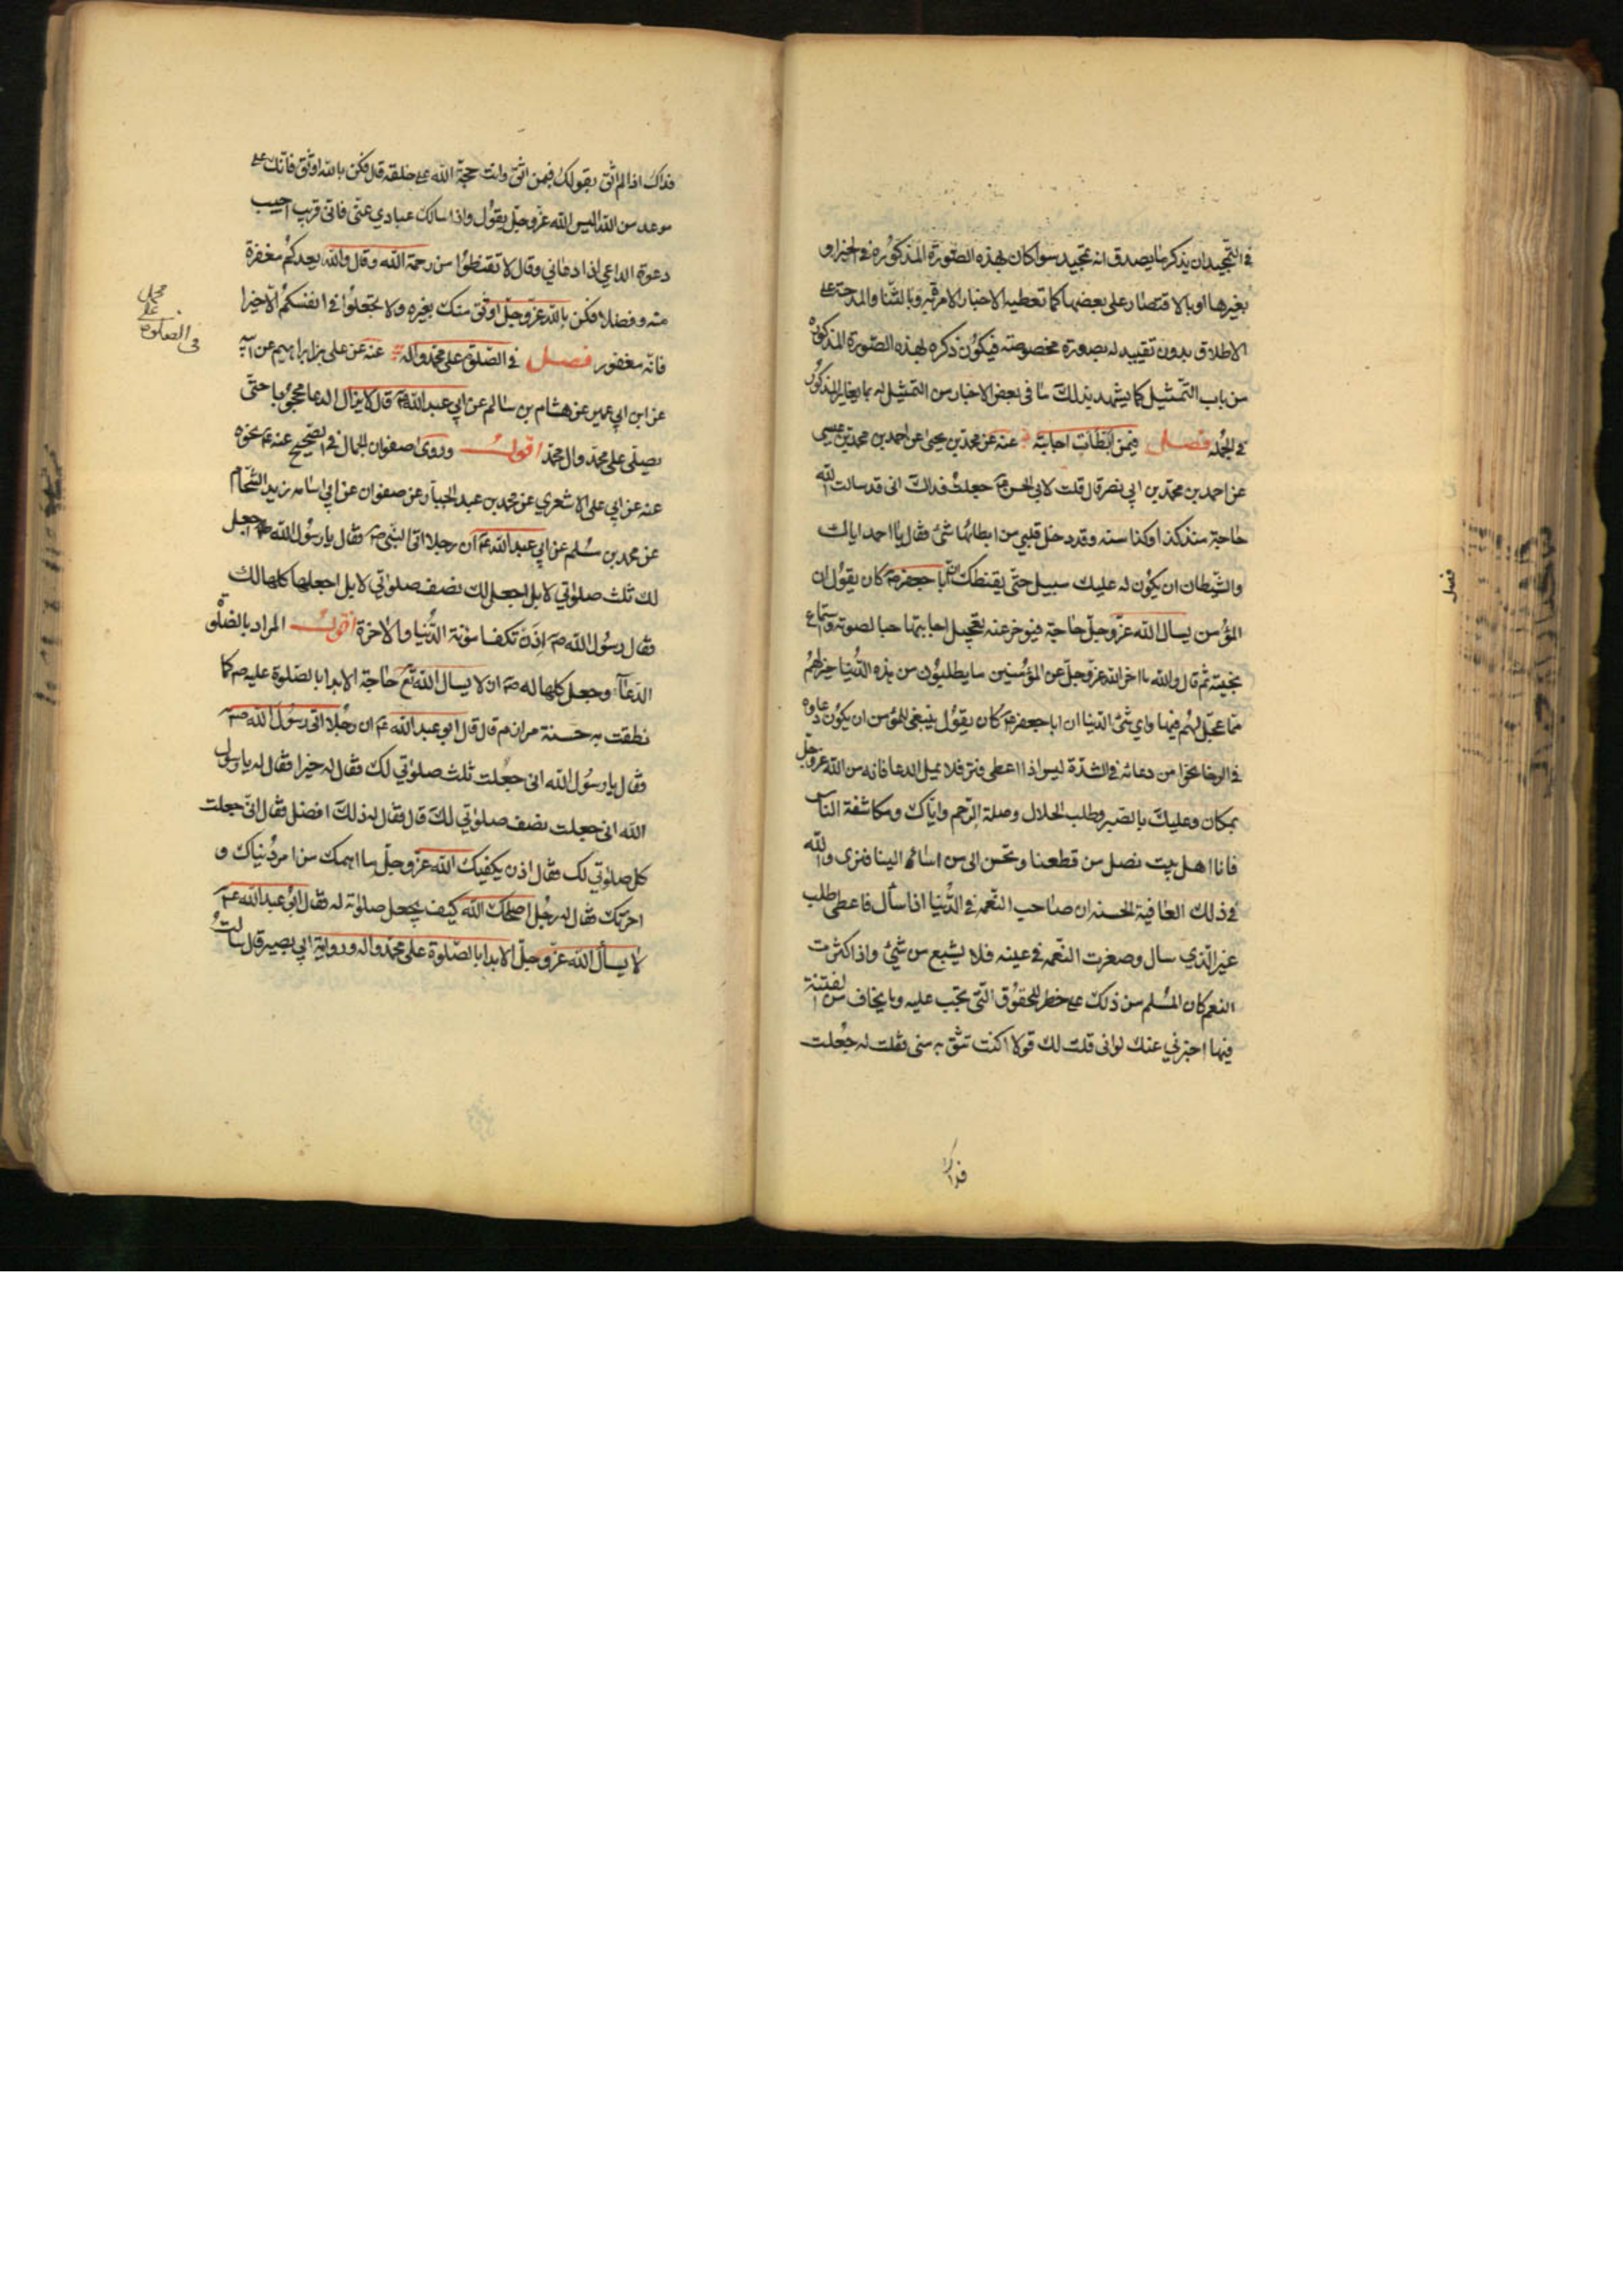 في التمجيد ان يذكر ما يصدق انه تمجيد سوا كان بهذه الصورة المذكورة في الخبر او
بغيرها او بالاقتصار على بعضها كما تعطيه الاخبار الامرة به وبالثنا والمدحة على
الاطلاق بدون تقييد له بصورة مخصوصة فيكون ذكره لهذه الصورة المذكورة
من باب التمثيل كما يشهد بذلك ما في بعض الاخبار من التمثيل له بما يغاير المذكور
في الجملة فصل فيمن ابطات اجابته عنه عن محمد بن يحيى عن احمد بن محمد بن عيسى
عن احمد بن محمد بن ابي نصر قال قلت لابي الحسن ع جعلت فداك اني قد سالت الله
حاجة منذ كذا وكذا سنه وقد دخل قلبي من ابطائها شئ فقال يا احمد اياك
والشيطان ان يكون له عليك سبيل حتى يقنطك ان ابا جعفر ع كان يقول ان
المؤمن يسال الله عز وجل حاجة فيوخر عنه تعجيل اجابتها حبا لصوته واستماع
نحيبه ثم قال والله ما اخر الله عز وجل عن المؤمنين ما يطلبون من هذه الدنيا خير لهم
مما عجل لهم فيها واي شئ الدنيا ان ابا جعفر ع كان يقول ينبغي للمؤمن ان يكون دعاوه
في الرخا نحوا من دعائه في الشدة ليس اذا اعطى فتر فلا يمل الدعا فانه من الله عز وجل
بمكان وعليك بالصبر وطلب الحلال وصلة الرحم واياك ومكاشفة الناس
فانا اهل بيت نصل من قطعنا ونحسن الى من اساء الينا فنرى والله
في ذلك العاقبة الحسنه ان صاحب النعمه في الدنيا اذا سأل فاعطي طلب
غير الذي سال وصغرت النعمه في عينه فلا يشبع من شئ واذا كثرت
النعم كان المسلم من ذلك على خطر للحقوق التي تجب عليه وما يخاف من الفتنة
فيها اخبرني عنك لو اني قلت لك قولا اكنت تثق به مني فقلت له جعلت
فداك
فصل
فداك اذا لم اثق بقولك فبمن اثق وانت حجة الله على خلقه قال فكن بالله اوثق فانك على
موعد من الله اليس الله عز وجل يقول واذا سالك عبادي عني فاني قريب اجيب
دعوة الداعي اذا دعاني وقال لا تقنطوا من رحمة الله وقال والله يعدكم مغفرة
منه وفضلا فكن بالله عز وجل اوثق منك بغيره ولا تجعلوا في انفسكم الا خيرا
فانه مغفور فصل في الصلوة على محمد واله عنه عن علي بن ابراهيم عن ابيه
عن ابن ابي عمير عن هشام بن سالم عن ابي عبد الله ع قال لا يزال الدعا محجوبا حتى
يصلى على محمد وال محمد اقول وروى صفوان الجمال في الصحيح عنه ع نحوه
عنه عن ابي علي الاشعري عن محمد بن عبد الجبار عن صفوان عن ابي اسامه زيد الشحام
عن محمد بن مسلم عن ابي عبد الله ع ان رجلا اتى النبي ص فقال يا رسول الله اجعل
لك ثلث صلوتي لا بل اجعل لك نصف صلوتي لا بل اجعلها كلها لك
فقال رسول الله ص اذن تكفا مؤنة الدنيا والاخرة اقول المراد بالصلوة
الدعآء وجعل كلها له ص ان لا يسال الله تع حاجة الا بدا بالصلوة عليه ص كما
نطقت به حسنة مرازم قال قال ابو عبد الله ع ان رجلا اتى رسول الله ص
فقال يا رسول الله اني جعلت ثلث صلوتي لك فقال له خيرا فقال له يا رسول
الله اني جعلت نصف صلوتي لك قال فقال له ذلك افضل فقال اني جعلت
كل صلوتي لك فقال اذن يكفيك الله عز وجل ما اهمك من امر دنياك و
اخرتك فقال له رجل اصلحك الله كيف يجعل صلوته له فقال ابو عبد الله ع
لا يسأل الله عز وجل الا بدا بالصلوة على محمد واله ورواية ابي بصير قال سالت
في الصلوة
على
محمد